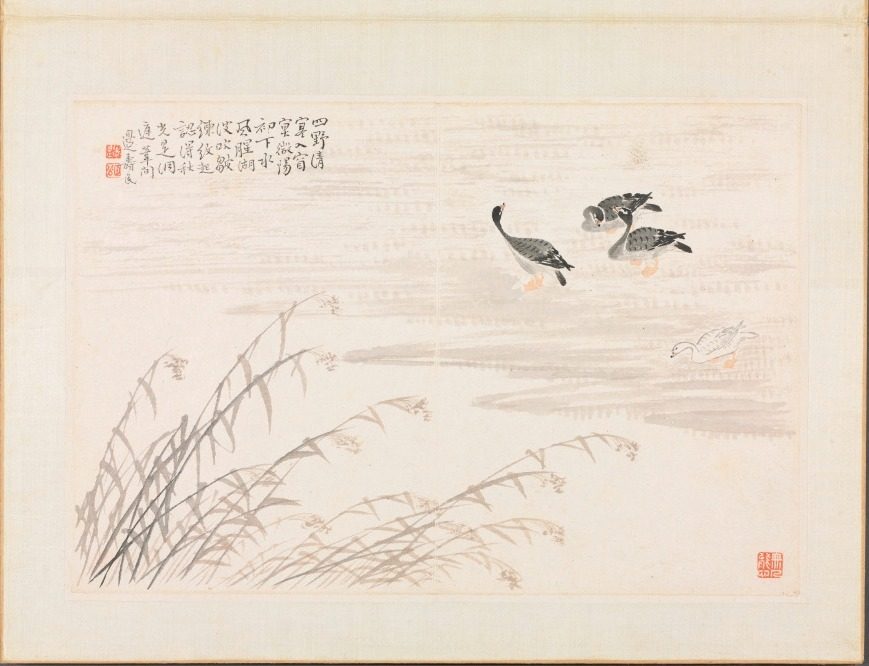 四野清
寒入窅
冥微陽
初下水
風腥湖
波吹皺
練紋起
認得秋
光是洞
庭 葦間
邊壽民